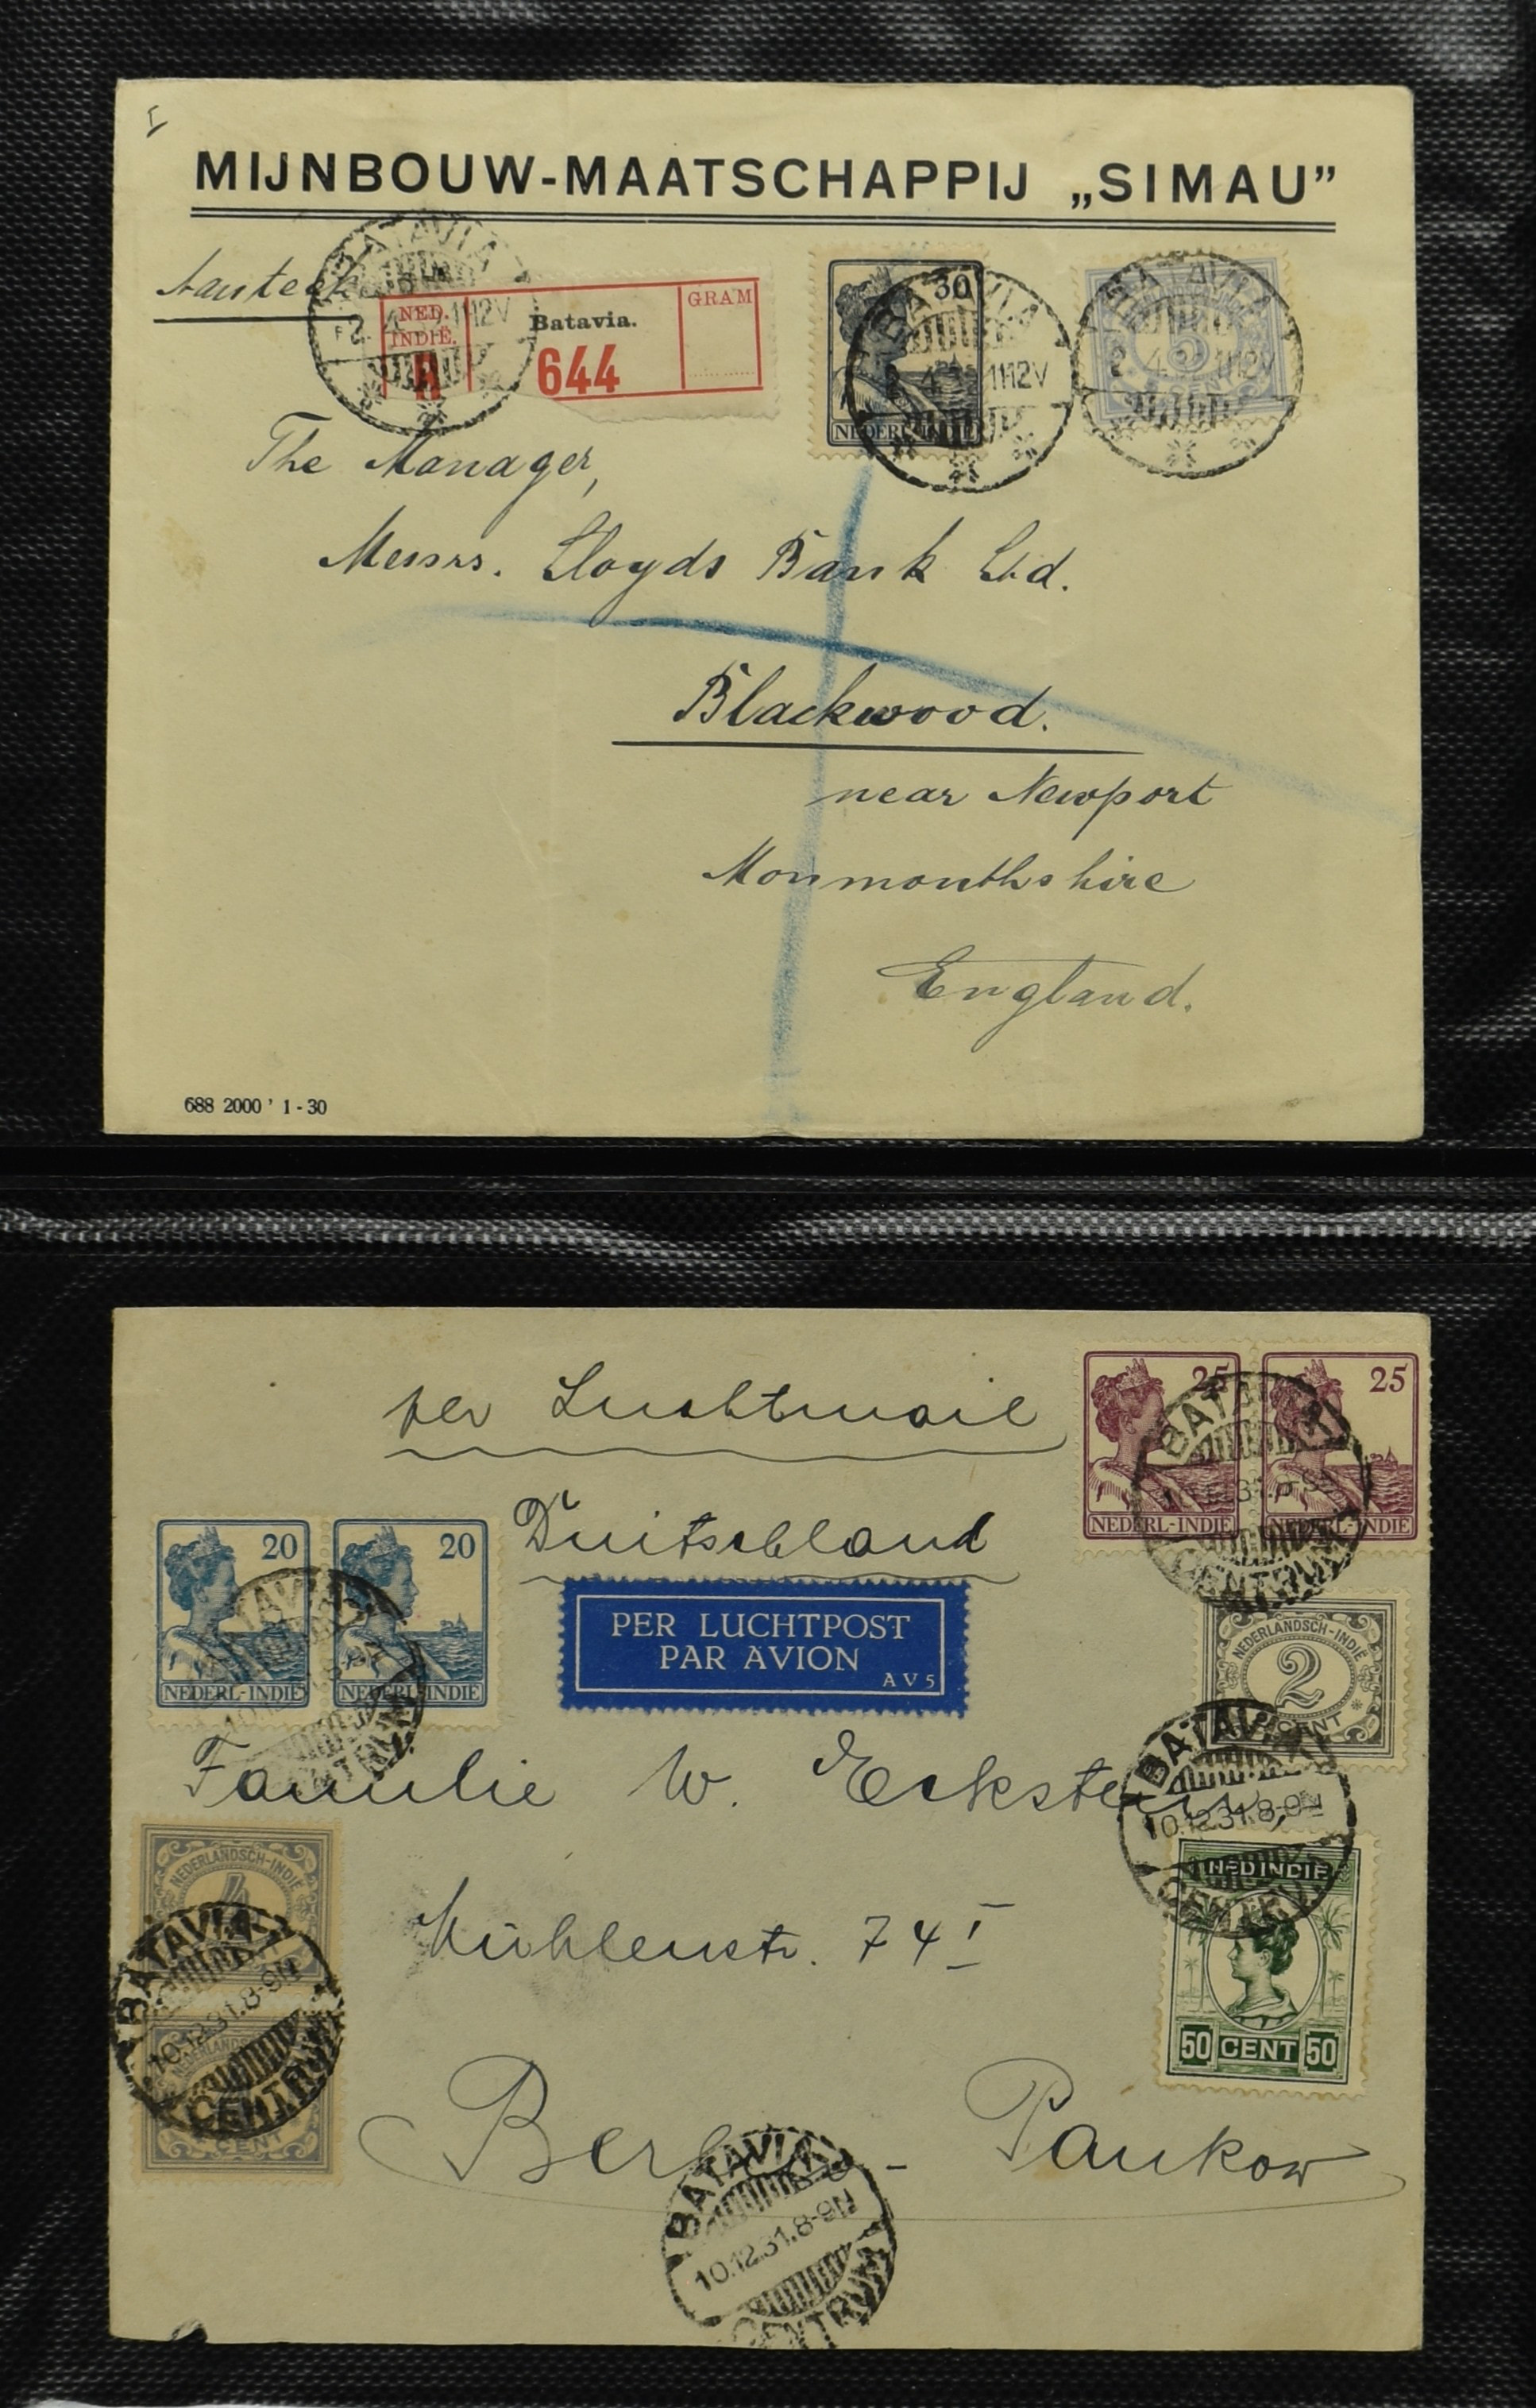 MIJNBOUW-MAATSCHAPPIJ „SIMAU”
BATAVIA
NED.
INDIË.
R
Batavia.
644
GRAM
30
NEDERL-INDIE
BATAVIA
11 12V
5
BATAVIA
11 12V
The Manager,
Messrs. Lloyds Bank Ltd.
Blackwood.
near Newport
Monmouthshire
England.
688 2000 ' 1 - 30
per Luchtmail
Duitschland
25
NEDERL-INDIE
25
NEDERL-INDIE
BATAVIA
CENTRUM
20
NEDERL-INDIE
20
NEDERL-INDIE
BATAVIA
CENTRUM
PER LUCHTPOST
PAR AVION
AV5
NEDERLANDSCH-INDIE
2
CENT
Familie W. Eckstein,
BATAVIA
10.12.31.8-9N
CENTRUM
NEDERLANDSCH-INDIE
4
BATAVIA
10.12.31.8-9N
CENTRUM
NEDERLANDSCH
CENT
NED INDIE
50 CENT 50
Mühlenstr. 74 I
Berlin - Pankow
BATAVIA
10.12.31.8-9N
CENTRUM